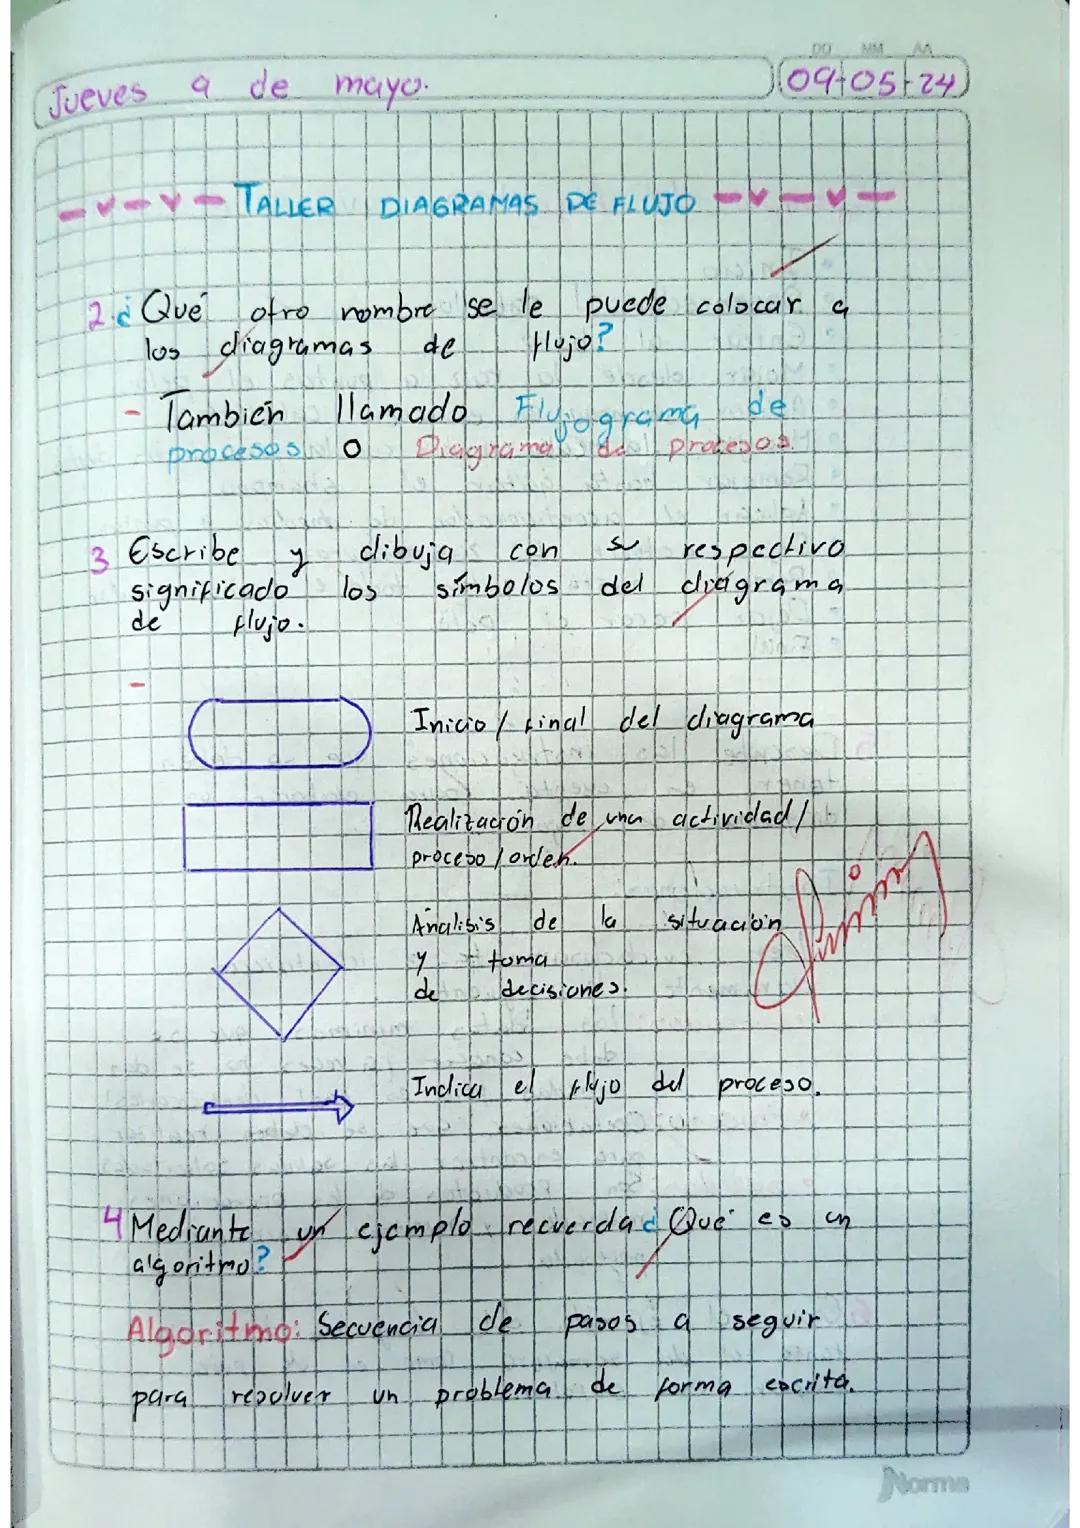 DD MM AA
Jueves 9 de mayo.
09-05-24
TALLER DIAGRAMAS DE FLUJO
2. ¿Qué otro nombre se le puede colocar a
los diagramas de flujo?
- También llamado Flujograma de
procesos o Diagrama de procesos.
3 Escribe y dibuja con su respectivo
significado los símbolos del diagrama
de flujo.
-
Inicio / final del diagrama
Realización de una actividad /
proceso / orden.
Análisis de la situación
y toma
de decisiones.
Indica el flujo del proceso.
4 Mediante un ejemplo recuerda ¿Qué es un
algoritmo?
Algoritmo: Secuencia de pasos a seguir
para resolver un problema de forma escrita.
Norma